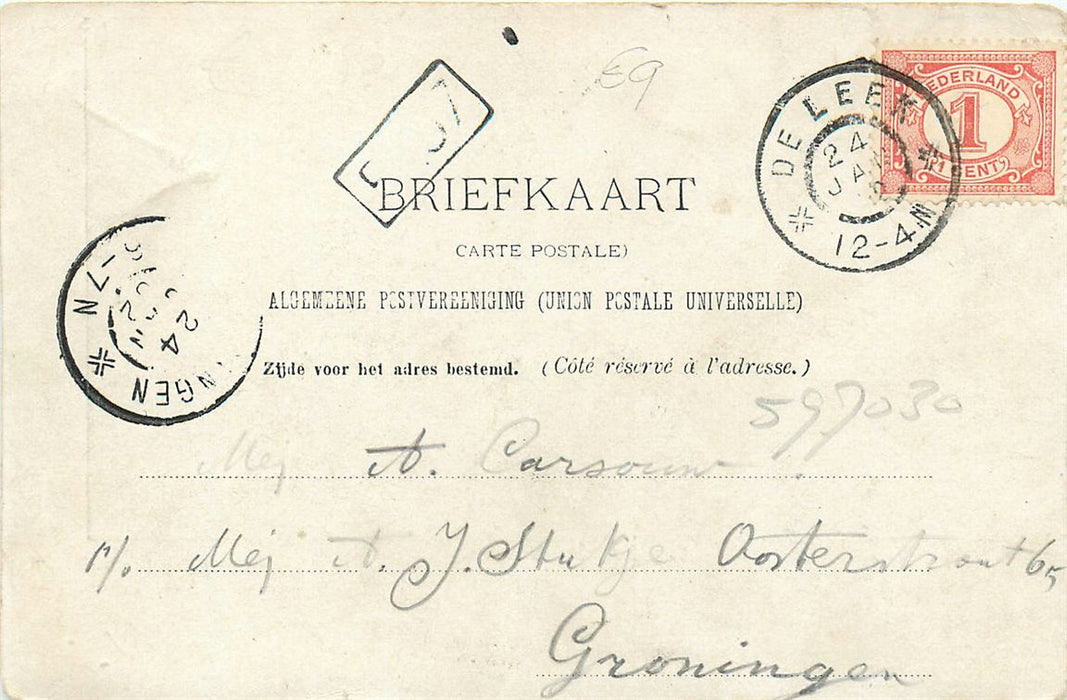 E9
NEDERLAND
1
1 CENT
DE LEEK
24
JAN
12-4N
57
BRIEFKAART
CARTE POSTALE)
ALGEMEENE POSTVEREENIGING (UNION POSTALE UNIVERSELLE)
Zijde voor het adres bestemd. (Côté réservé à l'adresse.)
-7N
24
NGEN
597030
Mej A. Carsouw
p/o. Mej A. J. Stukje Oosterstraat 65
Groningen